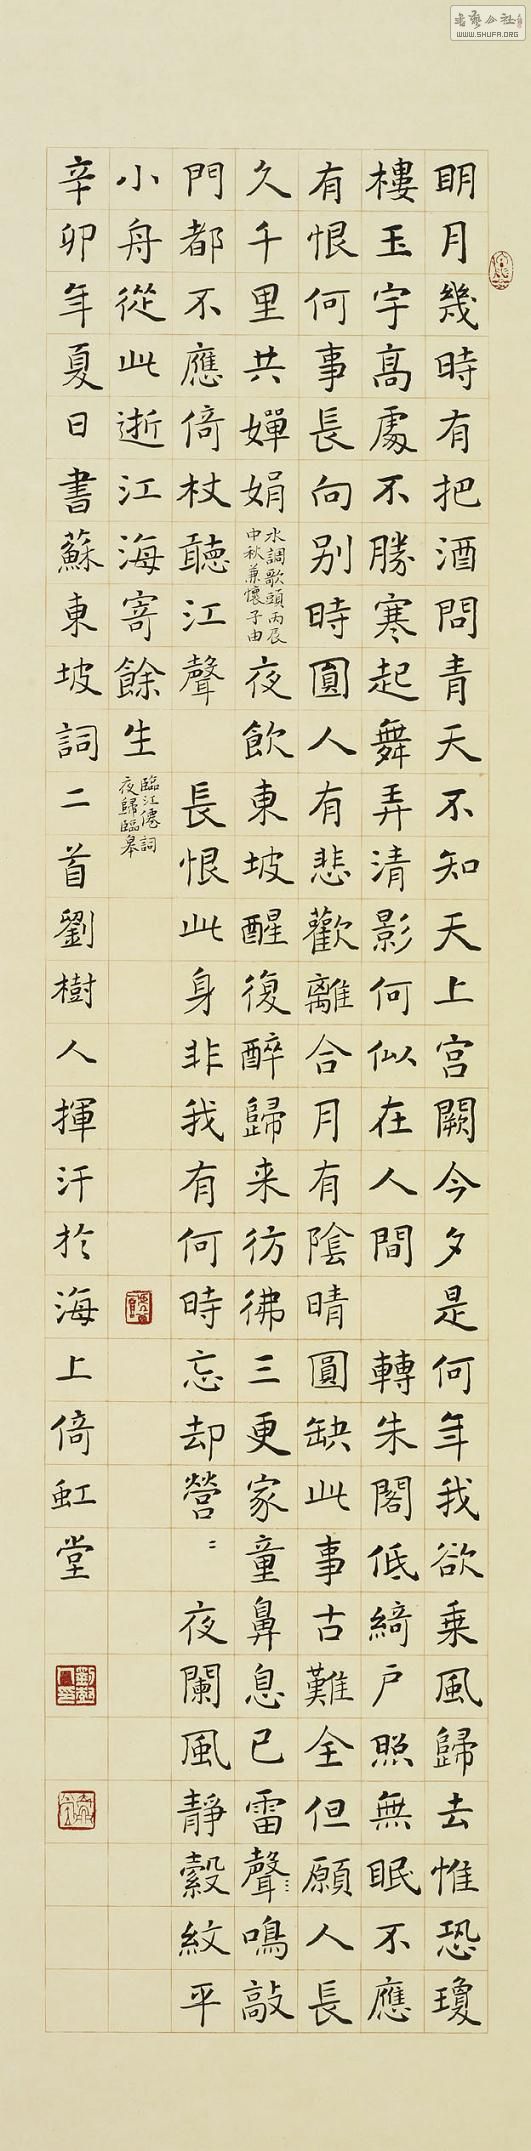 明月幾時有把酒問青天不知天上宮闕今夕是何年我欲乘風歸去惟恐瓊
樓玉宇高處不勝寒起舞弄清影何似在人間 轉朱閣低綺戶照無眠不應
有恨何事長向别時圓人有悲歡離合月有陰晴圓缺此事古難全但願人長
久千里共嬋娟
水調歌頭丙辰
中秋兼懷子由
夜飲東坡醒復醉歸来彷彿三更家童鼻息已雷聲鳴敲
門都不應倚杖聽江聲 長恨此身非我有何時忘却營〻 夜闌風靜縠紋平
小舟從此逝江海寄餘生
臨江僊詞
夜歸臨皋
辛卯年夏日書蘇東坡詞二首劉樹人揮汗於海上倚虹堂
書藝公社
WWW.SHUFA.ORG